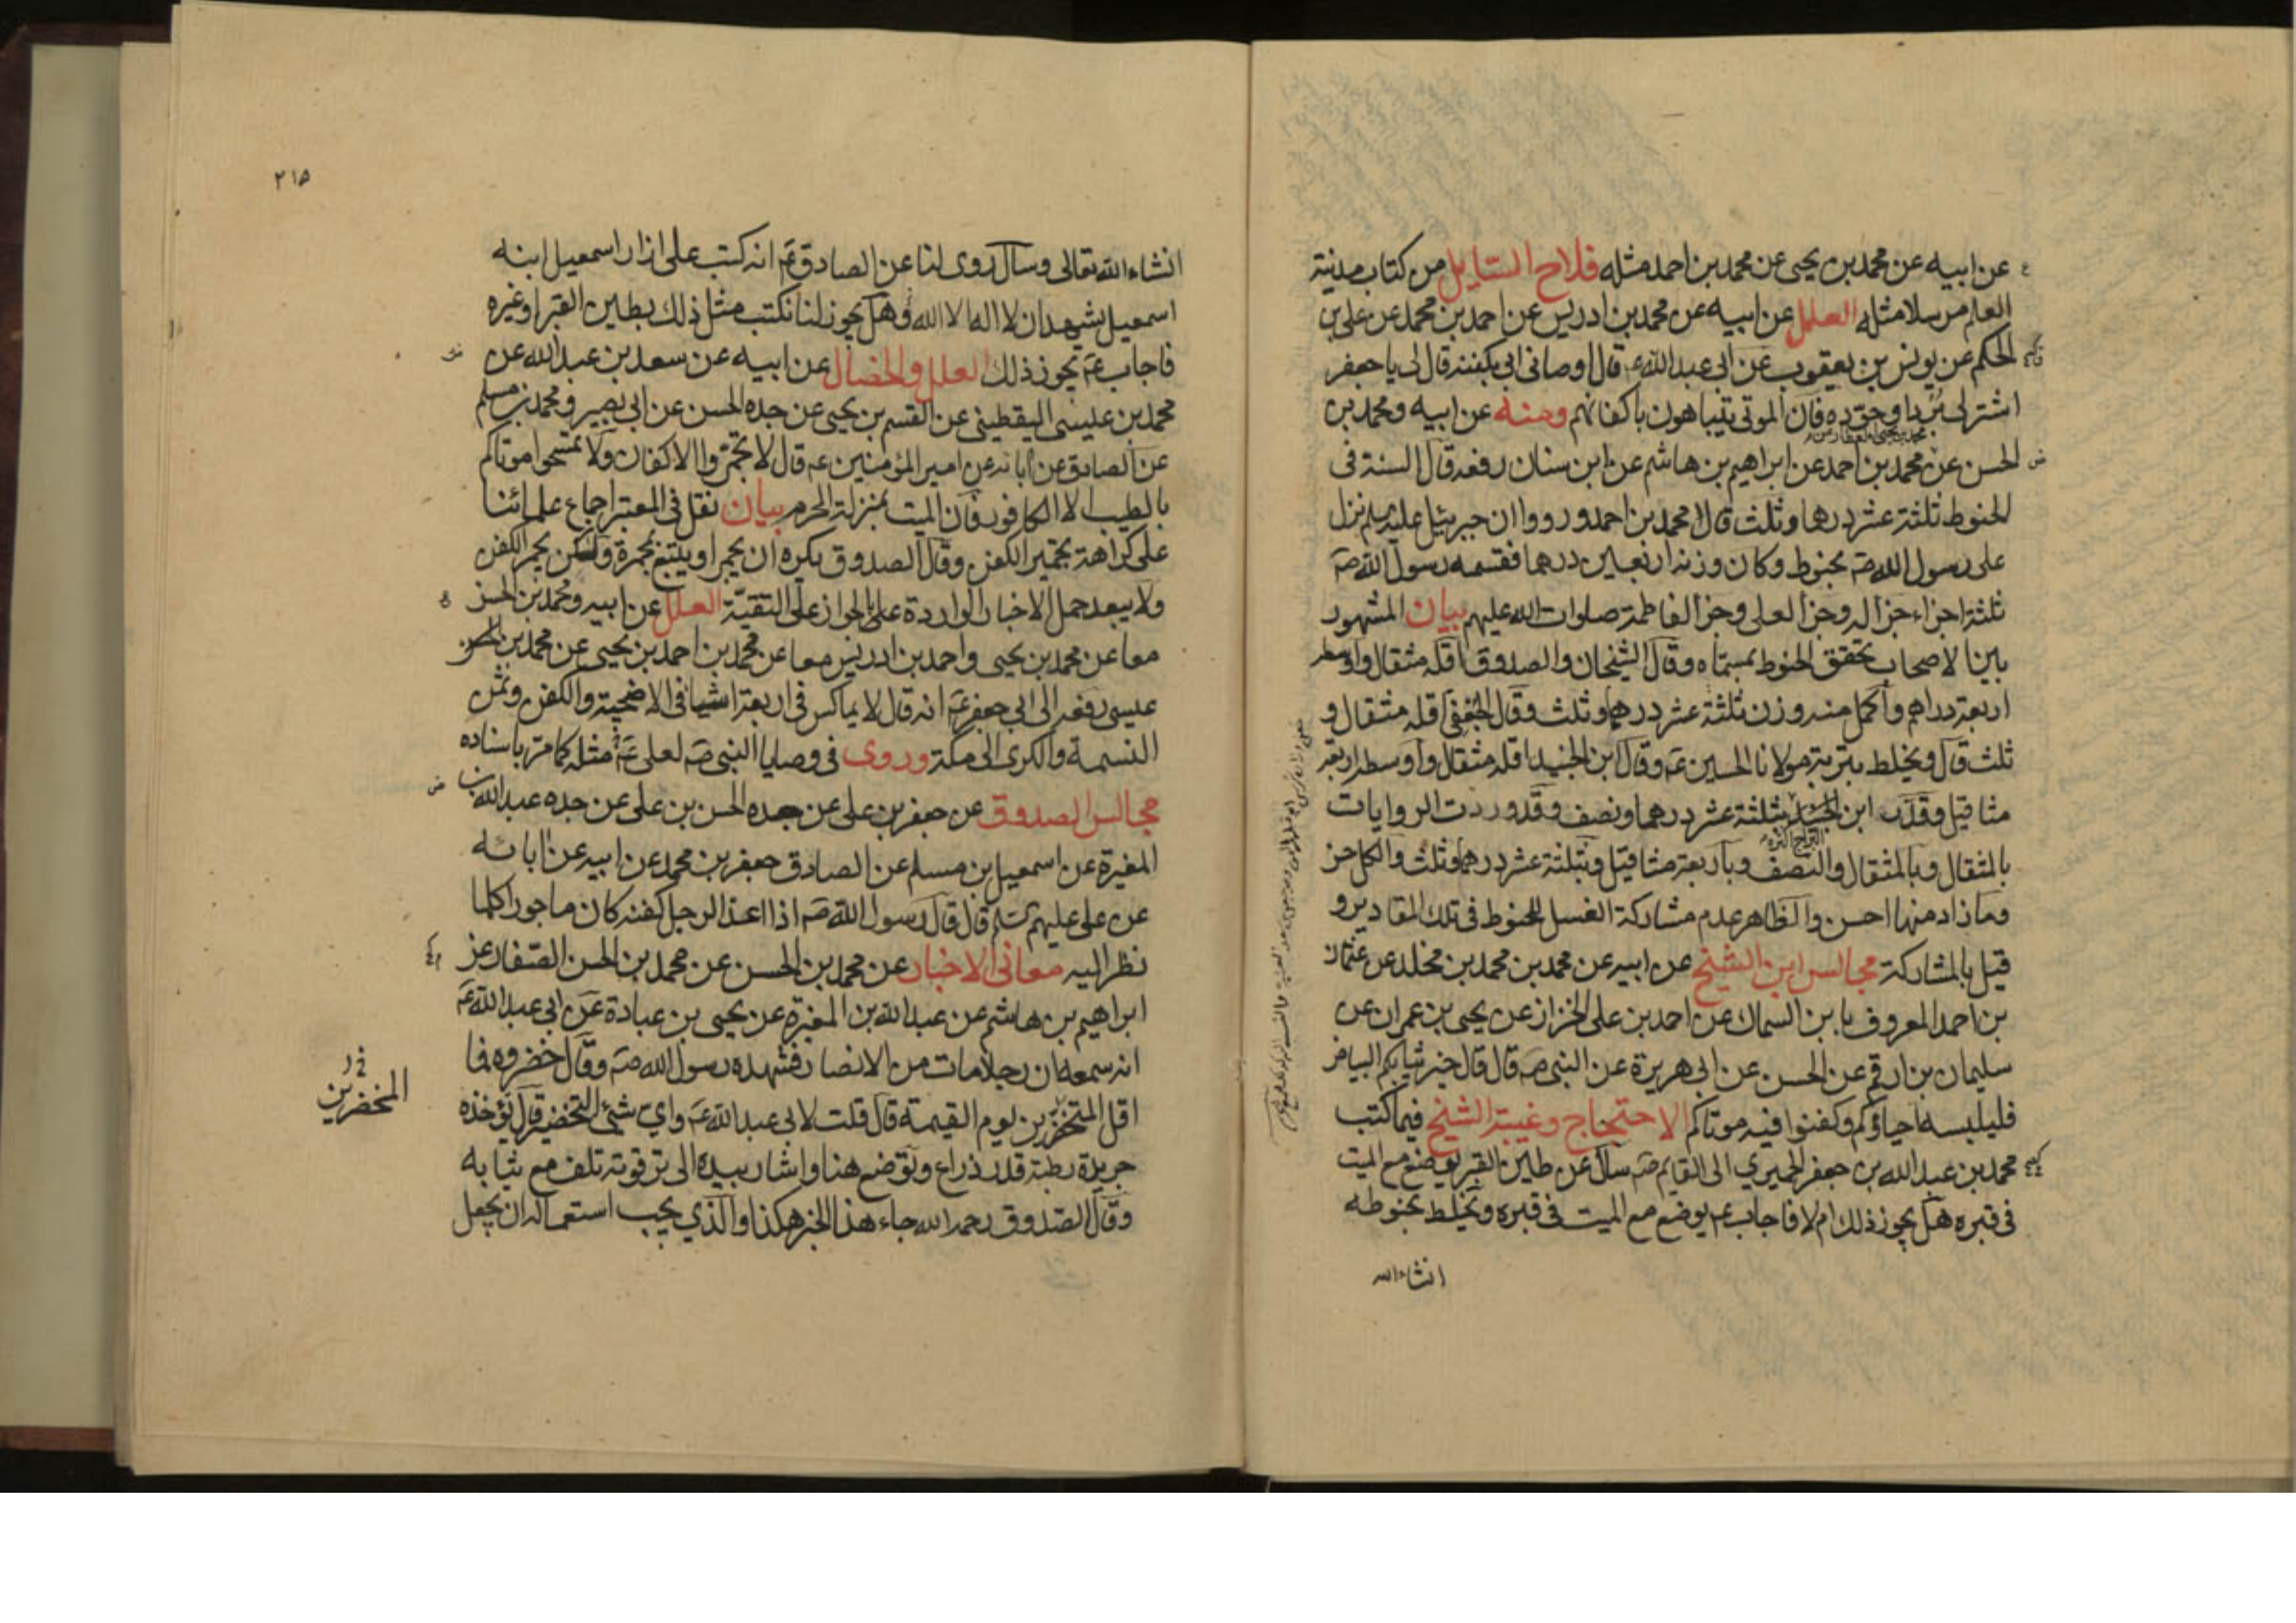 عن ابيه عن محمد بن يحيى عن محمد بن احمد مثله فلاح السايل من كتاب مدينة
العلم مرسلا مثله العلل عن ابيه عن محمد بن ادريس عن احمد بن محمد عن على بن
الحكم عن يونس بن يعقوب عن ابى عبد الله ع قال اوصانى ابى بكفنه قال لى يا جعفر
اشتر لى بردا وجوّده فان الموتى يتباهون باكفانهم ومنه عن ابيه ومحمد بن
محمد بن يحيى العطار عن
الحسن عن محمد بن احمد عن ابراهيم بن هاشم عن ابن سنان رفعه قال السنة فى
الحنوط ثلثة عشر درهما وثلث قال محمد بن احمد ورووا ان جبرئيل عليه السلم نزل
على رسول الله صہ بحنوط وكان وزنه اربعين درهما فقسمه رسول الله صہ
ثلثة اجزاء جزأ له وجزأ لعلى وجزأ لفاطمة صلوات الله عليهم بيان المشهور
بين الاصحاب تحقق الحنوط بمسمّاه وقال الشيخان والصدوق اقله مثقال واوسطه
اربعة دراهم واكمل منه وزن ثلثة عشر درهما وثلث وقال الجعفى اقله مثقال و
ثلث قال ويخلط بتربة مولانا الحسين عہ وقال ابن الجنيد اقله مثقال واوسطه اربعة
مثاقيل وقدّر ابن البراج اكثره بثلثة عشر درهما ونصف وقد وردت الروايات
بالمثقال وبالمثقال والنصف وباربعة مثاقيل وبثلثة عشر درهما وثلث والكل حسن
وما زاد منها احسن والظاهر عدم مشاركة الغسل للحنوط فى تلك المقادير و
قيل بالمشاركة مجالس ابن الشيخ عن ابيه عن محمد بن محمد بن مخلد عن عثمان
بن احمد المعروف بابن السماك عن احمد بن على الخزاز عن يحيى بن عمران عن
سليمان بن ارقم عن الحسن عن ابى هريرة عن النبى صہ قال قال خير ثيابكم البياض
فليلبسه احياؤكم وكفنوا فيه موتاكم الاحتجاج وغيبة الشيخ فيما كتب
محمد بن عبد الله بن جعفر الحميري الى القايم صہ سال عن طين القبر يوضع مع الميت
فى قبره هل يجوز ذلك ام لا فاجاب عہ يوضع مع الميت فى قبره ويخلط بحنوطه
انشاء الله
٢١٥
انشاء الله تعالى وسال روى لنا عن الصادق عہ انه كتب على ازار اسمعيل ابنه
اسمعيل يشهد ان لا اله الا الله وهل يجوز لنا نكتب مثل ذلك بطين القبر او غيره
فاجاب عہ يجوز ذلك العلل والخصال عن ابيه عن سعد بن عبد الله عن
محمد بن عيسى اليقطينى عن القسم بن يحيى عن جده الحسن عن ابى بصير ومحمد بن مسلم
عن الصادق عن آبائه عن امير المؤمنين عہ قال لا تجمّروا الاكفان ولا تمسحوا موتاكم
بالطيب الا الكافور فان الميت بمنزلة المحرم بيان نقل فى المعتبر اجماع علمائنا
على كراهة تجمير الكفن وقال الصدوق يكره ان يجمر او يتبع بمجمرة ولكن يجمر الكفن
ولا يبعد حمل الاخبار الواردة على الجواز على التقيّة العلل عن ابيه ومحمد بن الحسن
معا عن محمد بن يحيى واحمد بن ادريس معا عن محمد بن احمد بن يحيى عن محمد بن
عيسى رفعه الى ابى جعفر عہ انه قال لا يماكس فى اربعة اشيا فى الاضحية والكفن وثمن
النسمة والكرى الى مكة وروى فى وصايا النبى صہ لعلى عہ مثله كما مر باسناده
مجالس الصدوق عن جعفر بن على عن جده الحسن بن على عن جده عبد الله بن
المغيرة عن اسمعيل بن مسلم عن الصادق جعفر بن محمد عن ابيه عن ابائه
عن على عليهم السلم قال قال رسول الله صہ اذا اعد الرجل كفنه كان ماجورا كلما
نظر اليه معانى الاخبار عن محمد بن الحسن عن محمد بن الحسن الصفار عن
ابراهيم بن هاشم عن عبد الله بن المغيرة عن يحيى بن عبادة عن ابى عبد الله عہ
انه سمعه ان رجلا مات من الانصار فشهده رسول الله صہ وقال خضروه فما
اقل المتخضرين يوم القيمة قال قلت لابى عبد الله عہ واى شئ التخضير قال يؤخذ
المخضرين
جريدة رطبة قدر ذراع وتوضع هنا واشار بيده الى ترقوته تلف مع ثيابه
وقال الصدوق رحمه الله جاء هذا الخبر هكذا والذي يجب استعماله ان يجعل